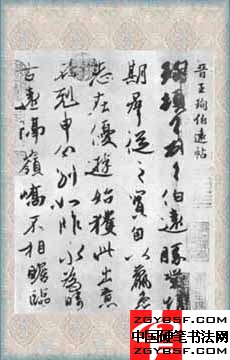 晋王珣伯遠帖
珣頓首頓首伯遠勝業情
期群從之寶自以羸患
志在優遊始獲此出意
不剋申分別如昨永為疇
古遠隔嶺嶠不相瞻臨
ZGYBSF.COM
中国硬笔书法网
ZGYBSF.COM